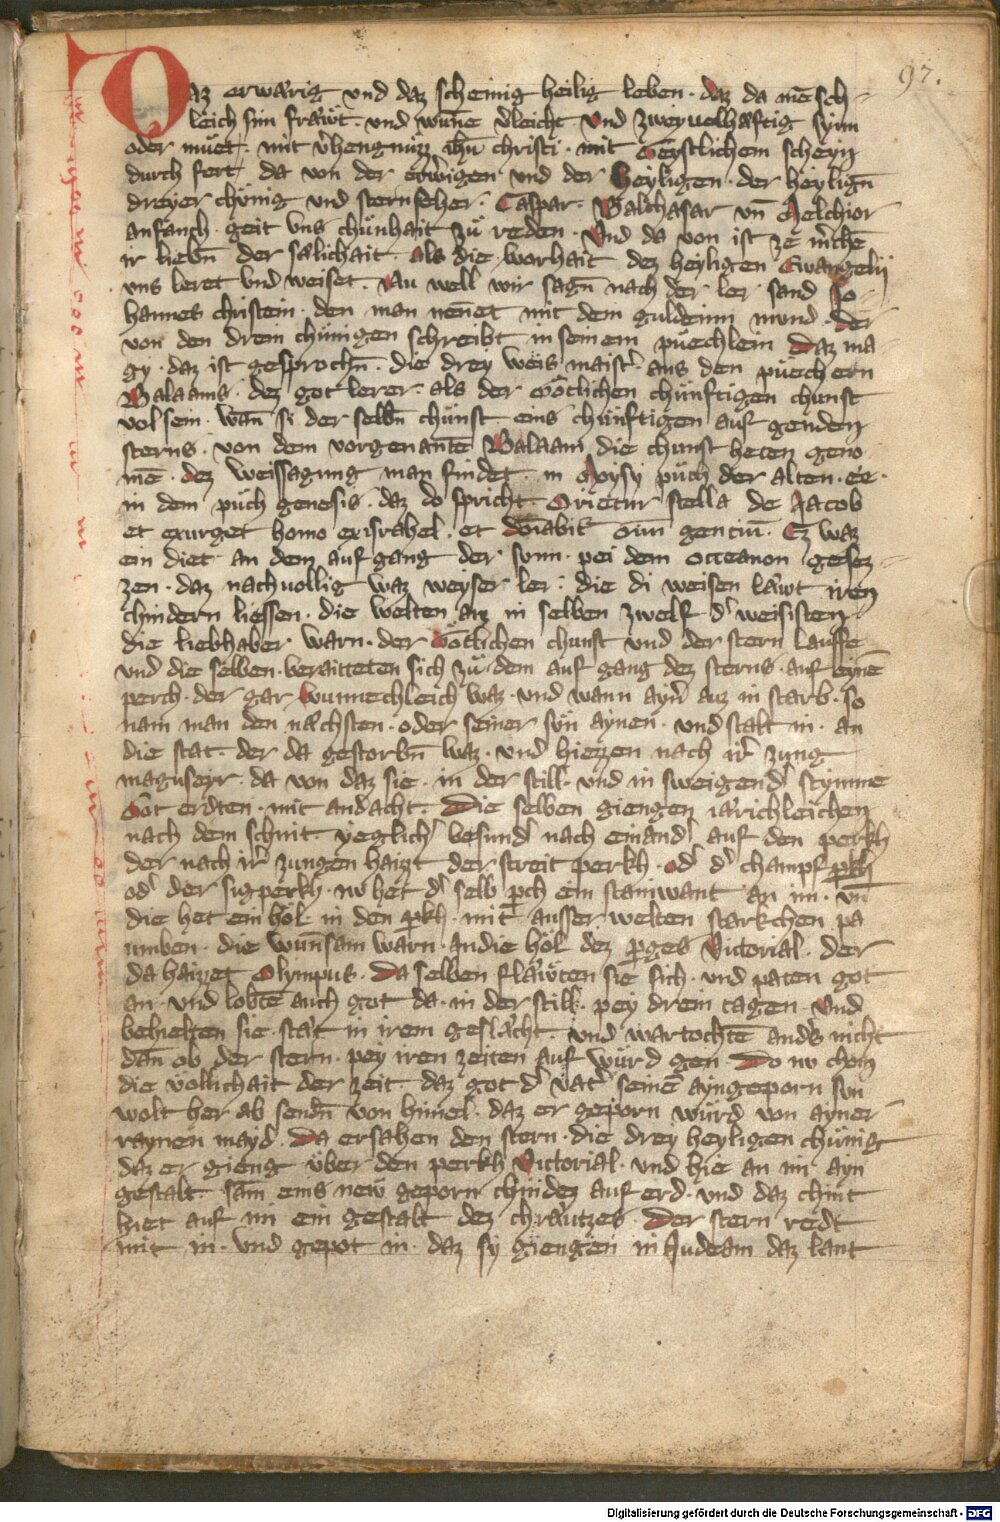 97.
Daz erwärig vnd daz scheinig heilig leben · daz da mēsch-
leich sinn fräwt · vnd wunne v̓leicht vnd zweyuelhaftig synn
oder müet · mit v̓hengnüzz ih̄u christi · mit Geystlichem scheyn
durch fert · da von der ewigen vnd der Heyligen · der heylign̄
dreyer chünig vnd sternseher · Caspar · Walthasar vn̄ Melchior
anfanch · geit vns chünhait zü reden · Vnd da von ist ze m̓chē
ir liebn̄ der sälichait · als die worhait dez heyligen Ewangelij
vns leret vnd weiset · Nu well wir sagn̄ nach der ler sand Jo-
hannes christein · den man nennet mit dem guldeinn mund · der
von den drein chünigen schreibt in seinem puechlein Daz ma
gy · daz ist gesprochn̄ · die drey weis maist̓ · aus den püechern
Walaams · dez got lerer · als der Götlichen chünftigen chunst
vol sein · wan̄ si der selbn̄ chünst eins chünftigen auf genden
sterns · von dem vorgenantē Walaam die chunst heten geno-
mē · dez weissagung man findet · in Moysy püch der alten · ee ·
in dem püch genesis · daz do spricht Orietur stella de Jacob
et exurget homo ex israhel · et dōiabit̄ oīm gencium̄ · Ez waz
ein diet an dem auf gang der sunn · pei dem occeanon gesez-
zen · daz nachuollig waz weyser ler · die di weisen läwt iren
chindern liessen · die welten auz in selben zwelf d̓ weisisten
die liebhaber warn · der Götlichen chunst vnd der stern lauffe
vnd die selben · beraitteten sich zü dem auf gang dez sterns · auf eynē
perch · der gar wunnechleich waz · vnd wann ayn̓ auz in starb · so
nam man den nächsten · oder seiner sün aynen · vnd stalt in · an
die stat · der da gestorbn̄ waz · vnd hiezzen nach ir̓ zung
maguseyr · da von daz sie · in der still · vnd in sweigend̓ stymme
Got erdten · mit andacht · Die selben giengen järichleichen
nach dem schnit yeglich̓ besund̓ nach einand̓ auf den perkh
der nach ir̓ zungen haizt der streit perkh · od̓ d̓ champf pkh
od̓ der sigperkh · nv het d̓ selb pch ein stainwant an im · vn̄
die het ein höl in den pkh · mit ausser welten starkchen pa
umben · die wun̄sam warn · An die höl dez pges Victorial · der
da haizzet Olympus · Da selben fläwten sie sich · vnd paten got
an · vnd lobtē auch got da · in der still · pey drein tagen · Vnd
behielten sie · stät in irem geslächt · vnd wartochtē and̓s nicht
dan̄ ob der stern · pey iren zeiten auf würd gen · Do nv chom
die vollichait der zeit · daz got d̓ vät̓ seinē ayngeporn sun
wolt her ab sendn̄ von himel · daz er geporn würd von ayner
raynen mayd · Da ersahen den stern · die drey heyligen chünig
daz er gieng über den perkh Victorial · vnd hie an im ayn
gestalt · sam̄ eins new geporn chindez auf erd · vnd daz chint
hiet auf im ein gestalt dez chräutzes · Der stern redt
mit in · vnd gepot in · daz sy giengen in Judeam daz lant
Digitalisierung gefördert durch die Deutsche Forschungsgemeinschaft - DFG